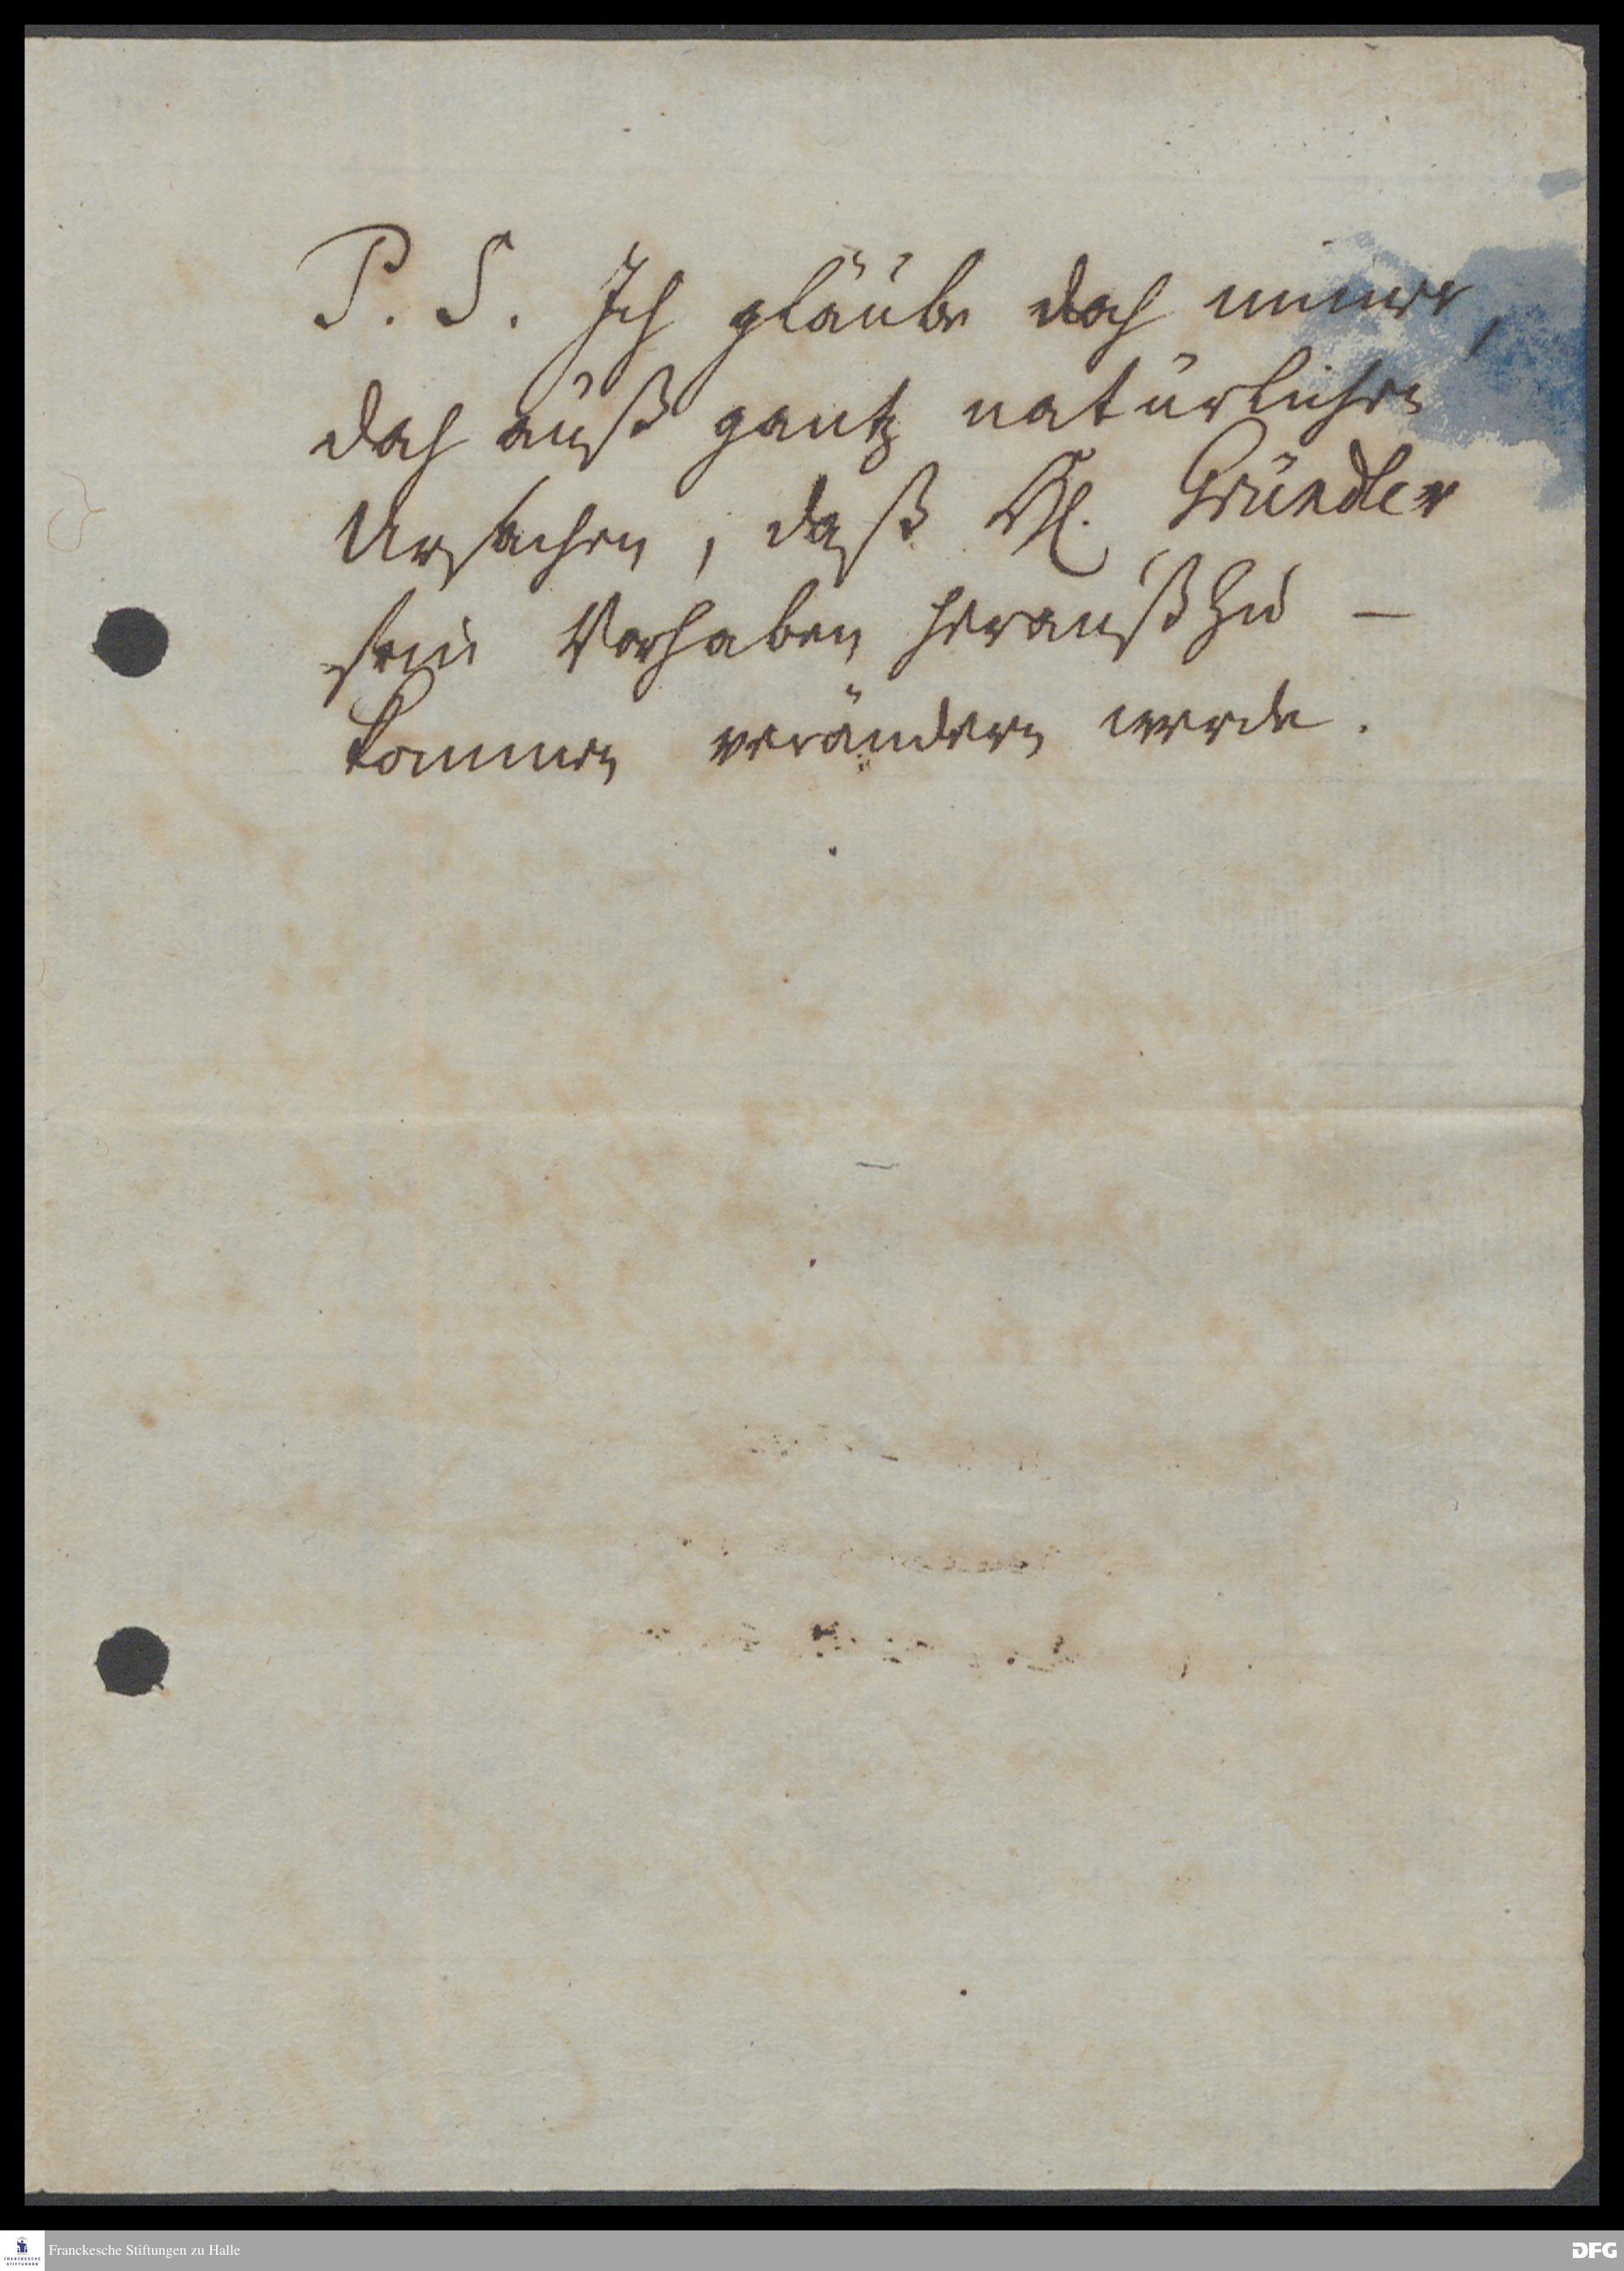 P. S. Ich gläube doch immer,
doch auß gantz natürlichen
Ursachen, daß H. Gründler
sein Vorhaben heraußzu-
kommen verändern werde.
FRANCKESCHE
STIFTUNGEN
Franckesche Stiftungen zu Halle
DFG